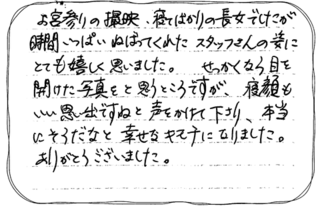 お宮参りの撮映、寝てばかりの長女でしたが
時間いっぱいねばってくれたスタッフさんの姿に
とても嬉しく思いました。 せっかくなら目を
開けた写真をと思うところですが、寝顔も
いい思い出ですねと声をかけて下さり、本当
にそうだなと幸せなキモチになりました。
ありがとうございました。